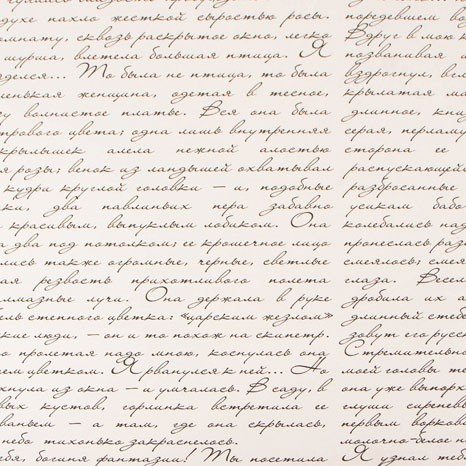 духе пахло жесткой сыростью росы.
омнату, сквозь раскрытое окно, легко
шурша, влетела большая птица. Я
делся... То была не птица, то была
енькая женщина, одетая в тесное,
у волнистое платье. Вся она была
трового цвета; одна лишь внутренняя
крылышек алела нежной алостью
я розы; венок из ландышей охватывал
кудри круглой головки — и, подобные
ки, два павлиньих пера забавно
красивым, выпуклым лобиком. Она
а два под потолком; ее крошечное лицо
лись также огромные, черные, светлые
ая резвость прихотливого полета
лмазные лучи. Она держала в руке
ель степного цветка: «царским жезлом»
кие люди, — он и то похож на скипетр.
о пролетая надо мною, коснулась она
ем цветком. Я рванулся к ней... Но
хнула из окна — и умчалась. В саду, в
вых кустов, горлинка встретила ее
ваньем — а там, где она скрылась,
небо тихонько закраснелось.
ебя, богиня фантазии! Ты посетила
поредевшем во
Вдруг в мою к
позванивая и
вздрогнул, вгл
крылатая ма
длинное, кни
серая, перламу
сторона ее
распускающей
разбросанные
усикам бабо
колебались над
пронеслась раз
смеялось; смея
глаза. Весел
дробила их а
длинный стебе
зовут его русс
Стремительно
моей головы те
она уже выпорх
глуши сиренев
первым воркова
молочно-белое не
Я узнал теб